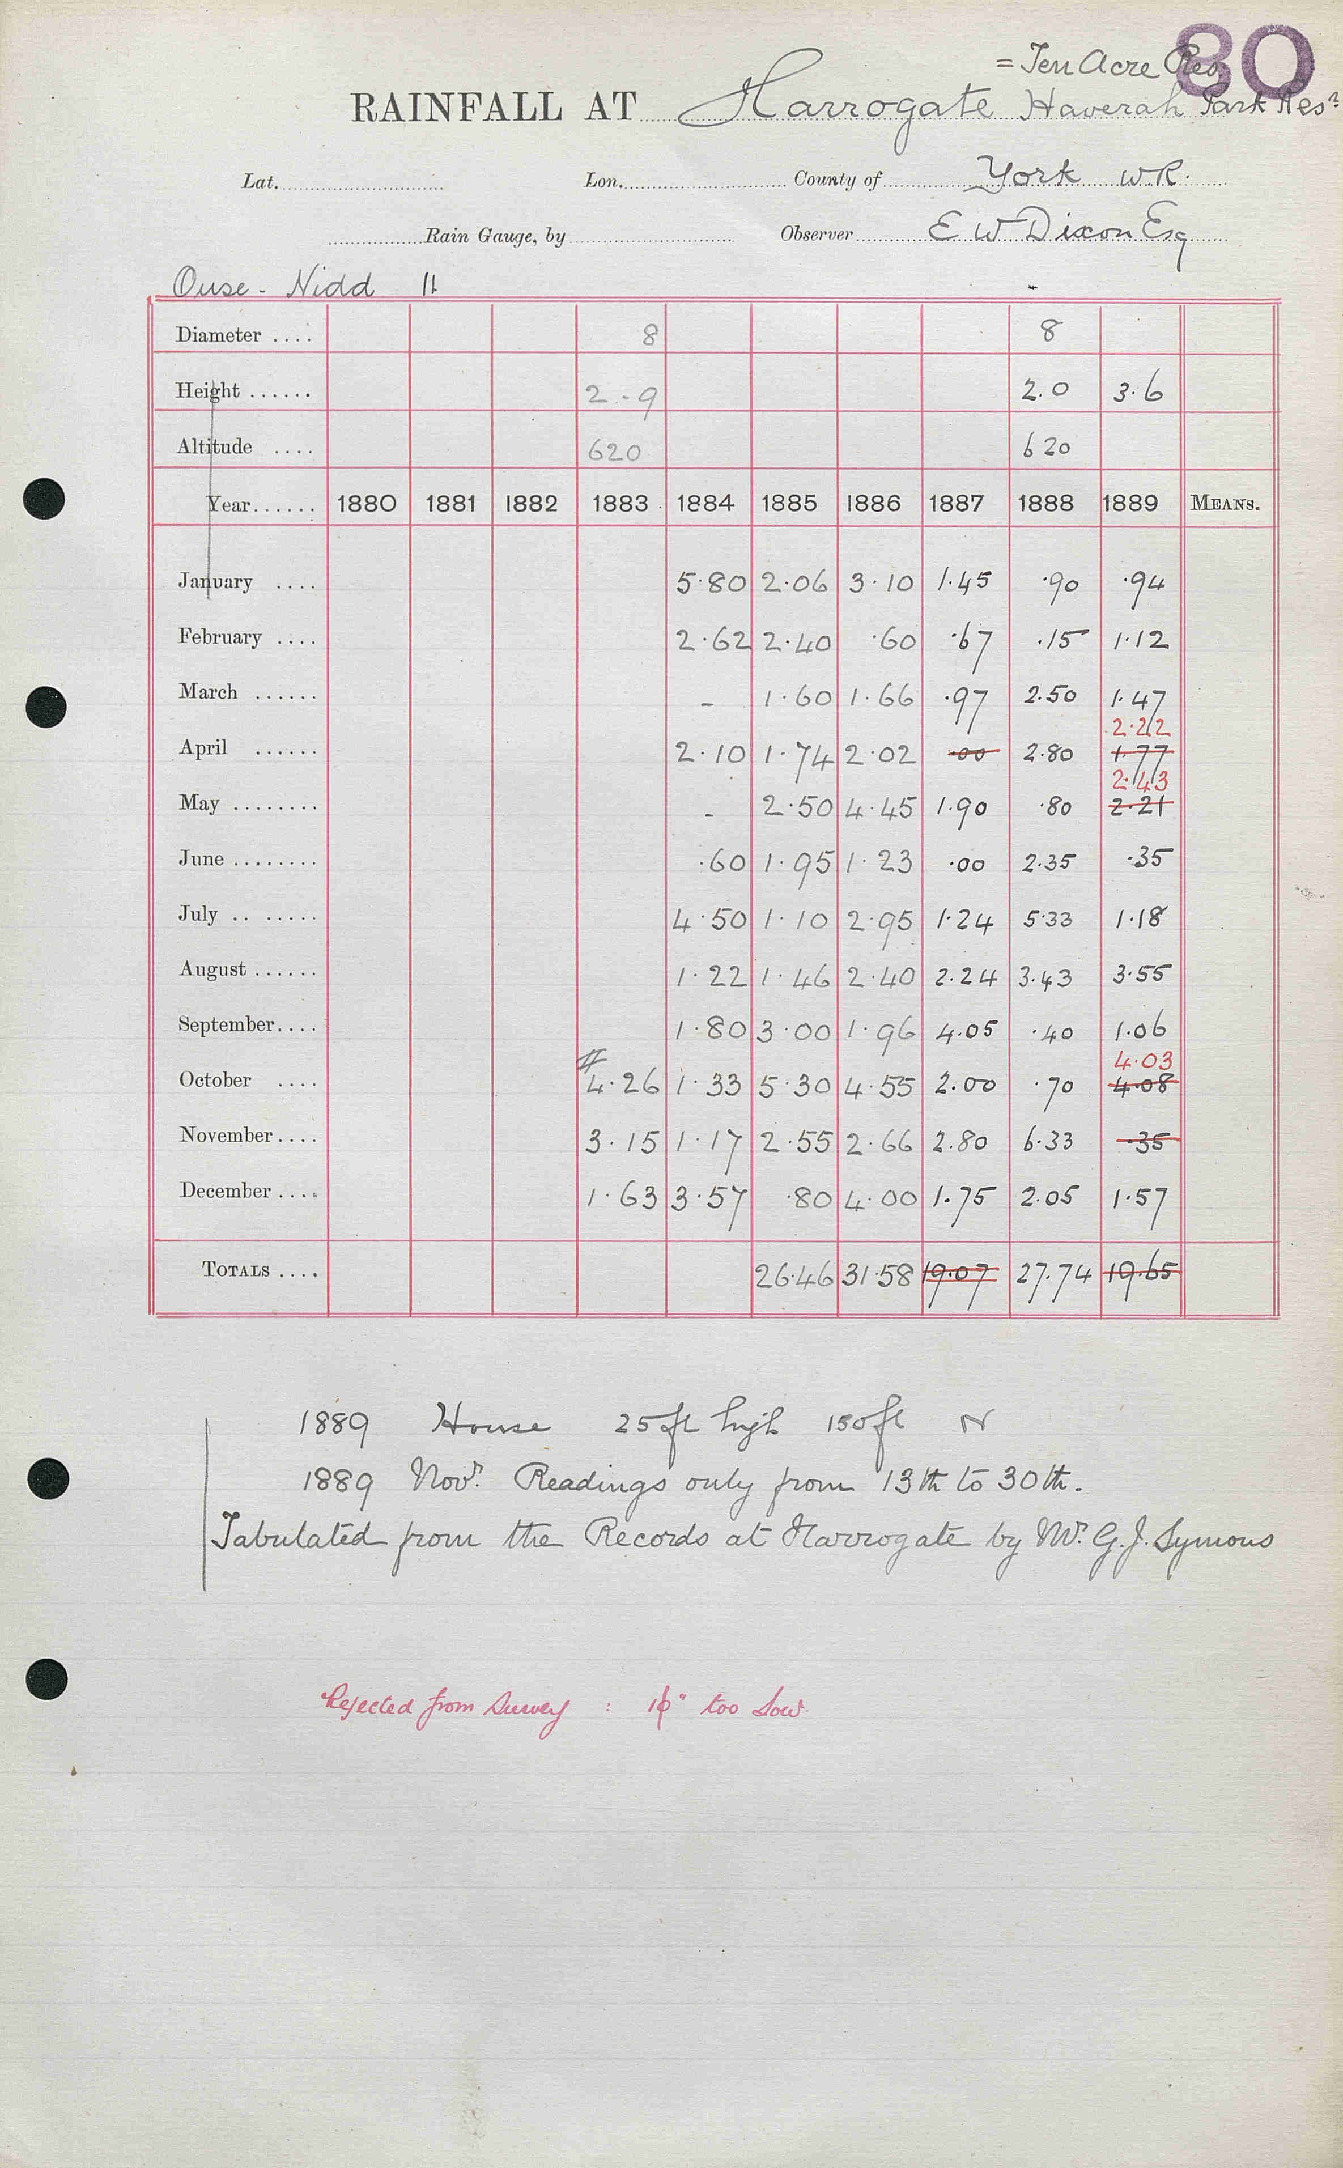 80
= Ten Acre Res
RAINFALL AT Harrogate Haverah Park Resr
Lat. Lon. County of York W.R.
Rain Gauge, by Observer E W Dixon Esq
Ouse - Nidd 11
Diameter .... 8 8
Height ...... 2.9 2.0 3.6
Altitude .... 620 620
Year...... 1880 1881 1882 1883 1884 1885 1886 1887 1888 1889 MEANS.
January .... 5.80 2.06 3.10 1.45 .90 .94
February .... 2.62 2.40 .60 .67 .15 1.12
March ...... - 1.60 1.66 .97 2.50 1.47
2.22
April ...... 2.10 1.74 2.02 .00 2.80 1.77
2.43
May ........ - 2.50 4.45 1.90 .80 2.21
June ........ .60 1.95 1.23 .00 2.35 .35
July .. ...... 4.50 1.10 2.95 1.24 5.33 1.18
August ...... 1.22 1.46 2.40 2.24 3.43 3.55
September.... 1.80 3.00 1.96 4.05 .40 1.06
# 4.03
October .... 4.26 1.33 5.30 4.55 2.00 .70 4.08
November.... 3.15 1.17 2.55 2.66 2.80 6.33 .35
December .... 1.63 3.57 .80 4.00 1.75 2.05 1.57
TOTALS .... 26.46 31.58 19.07 27.74 19.65
1889 House 25 ft high 150 ft N
1889 Novr. Readings only from 13th to 30th.
Tabulated from the Records at Harrogate by Mr. G. J. Symons
Rejected from Survey : " too low